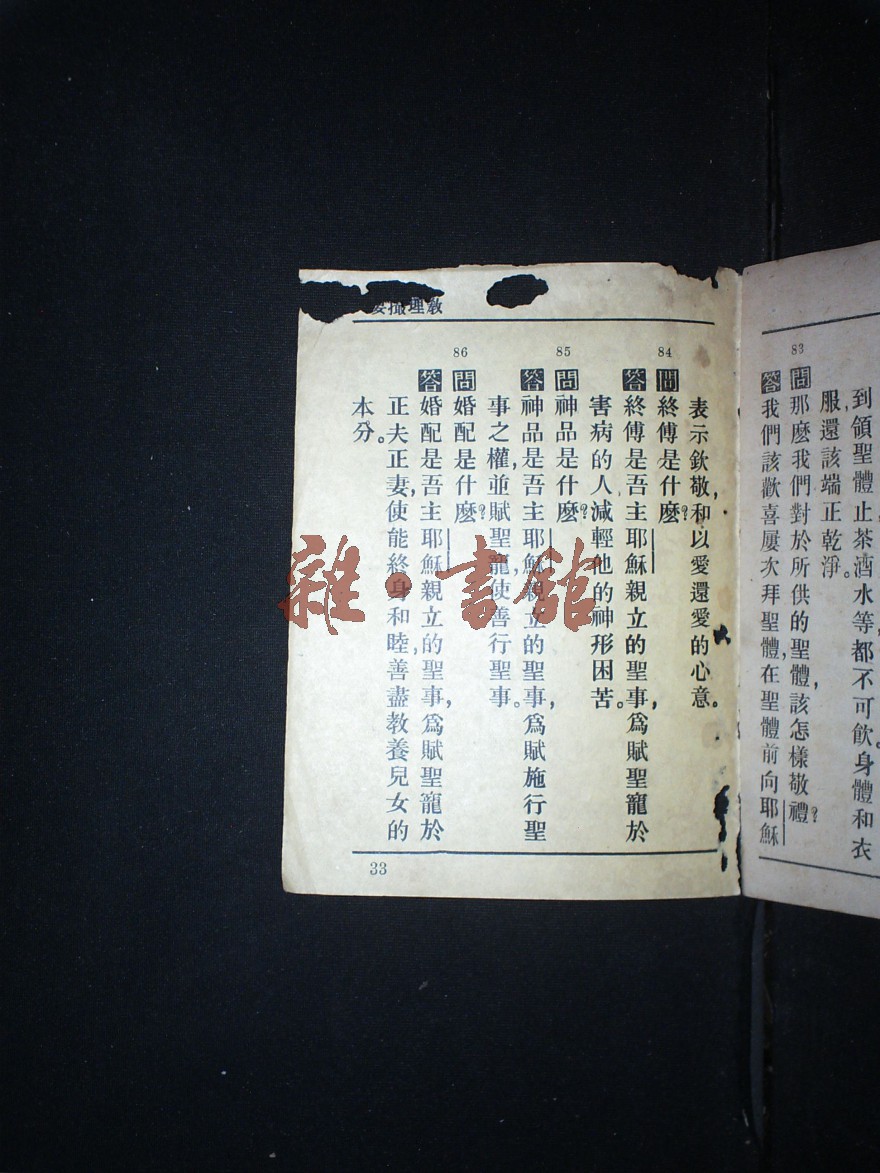 到領聖體止,茶酒水等都不可飲。身體和衣
服還該端正乾淨。
83
問 那麼我們對於所供的聖體,該怎樣敬禮?
答 我們該歡喜屢次拜聖體,在聖體前向耶穌
教理撮要
表示欽敬,和以愛還愛的心意。
84
問 終傅是什麼?
答 終傅是吾主耶穌親立的聖事,爲賦聖寵於
害病的人,減輕他的神形困苦。
85
問 神品是什麼?
答 神品是吾主耶穌親立的聖事,爲賦施行聖
事之權,並賦聖寵,使善行聖事。
86
問 婚配是什麼?
答 婚配是吾主耶穌親立的聖事,爲賦聖寵於
正夫正妻,使能終身和睦,善盡教養兒女的
本分。
33
雜·書館